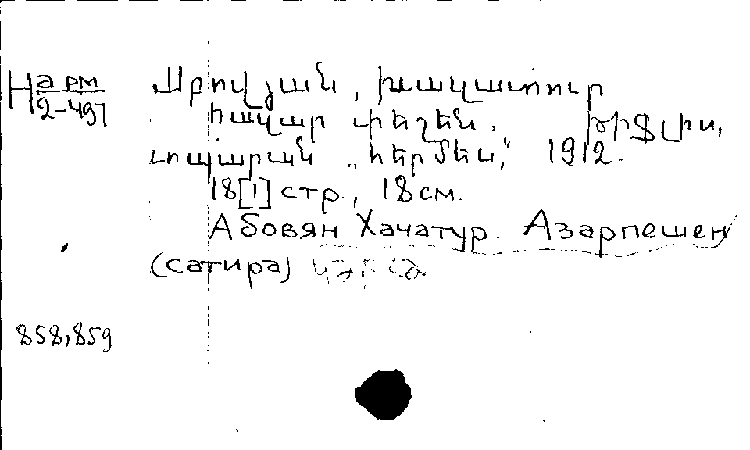 Н арм
2-497
Աբովյան, Խաչատուր
Թիֆլիս,
տպարան „Հերմես“, 1912.
18[1] стр., 18см.
Абовян Хачатур. Азарпешен
(сатира)
858,859